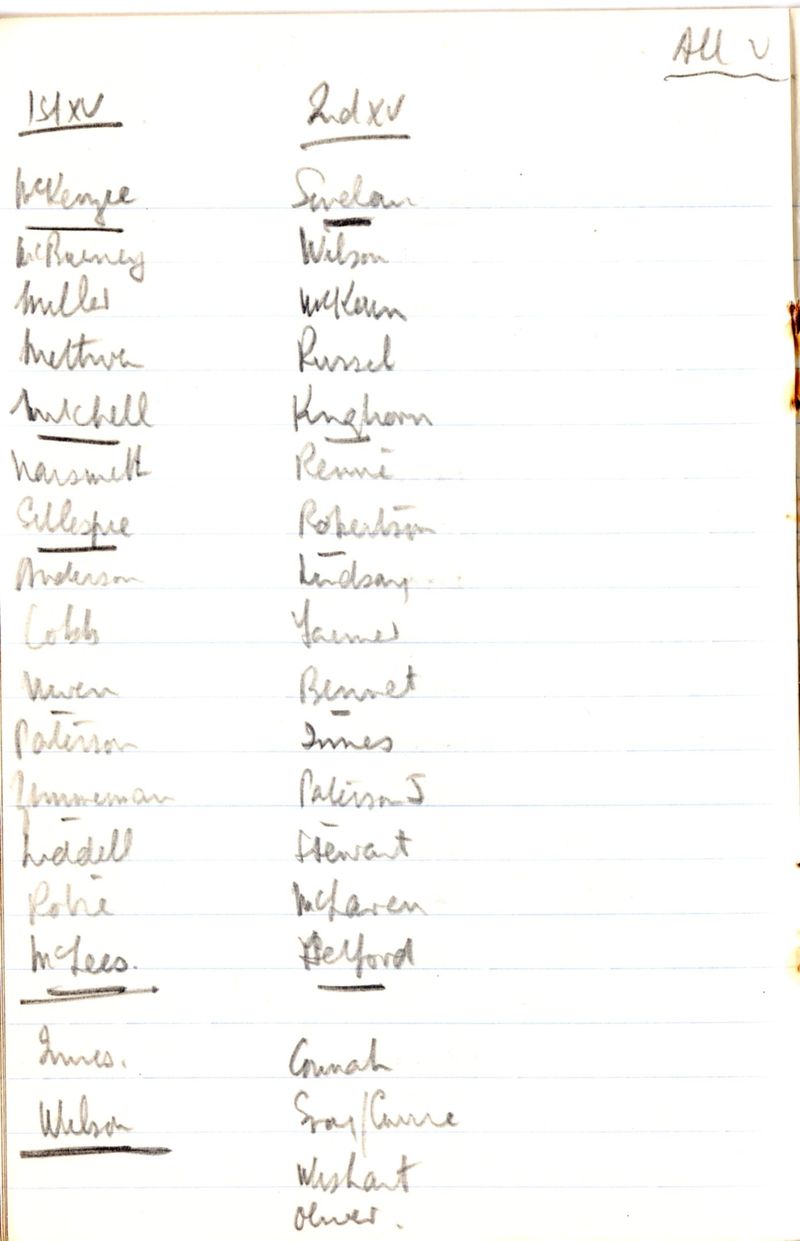 All v
1st XV
McKenzie
McBurney
Miller
Methven
Mitchell
Gillespie
Anderson
Cobb
Paterson
Zimmerman
Liddell
Robie
McLees.
Innes.
Wilson
2nd XV
Sinclair
Wilson
McKeen
Russel
Kinghorn
Rennie
Robertson
Lindsay
Bennet
Innes
Paterson J
Stewart
McLaren
Helford
Connah
Gray/Currie
Wishart
Oliver.